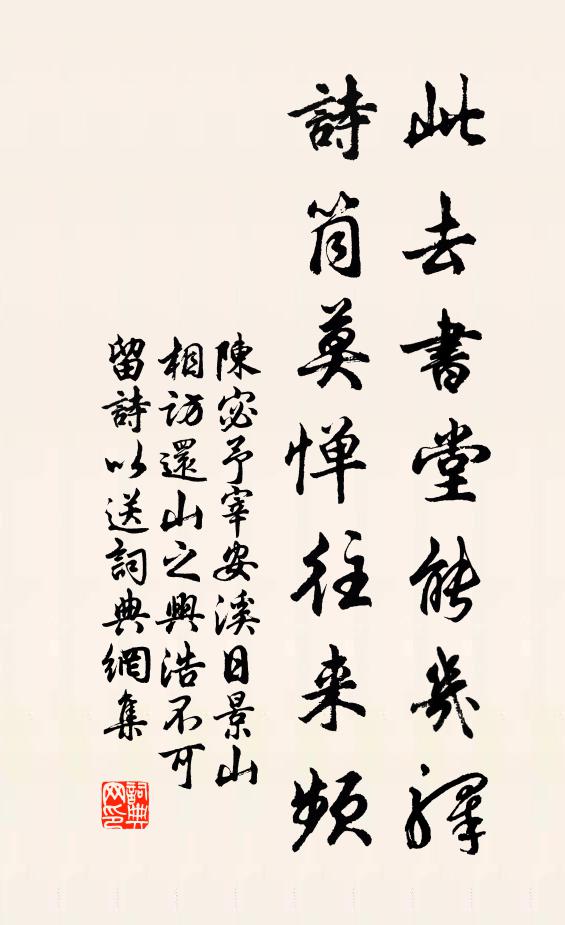 此去書堂能幾驛
詩筒莫憚往来頻
陳宓予宰安溪日景山
相訪還山之興浩不可
留詩以送詞典網集
詞典
网印